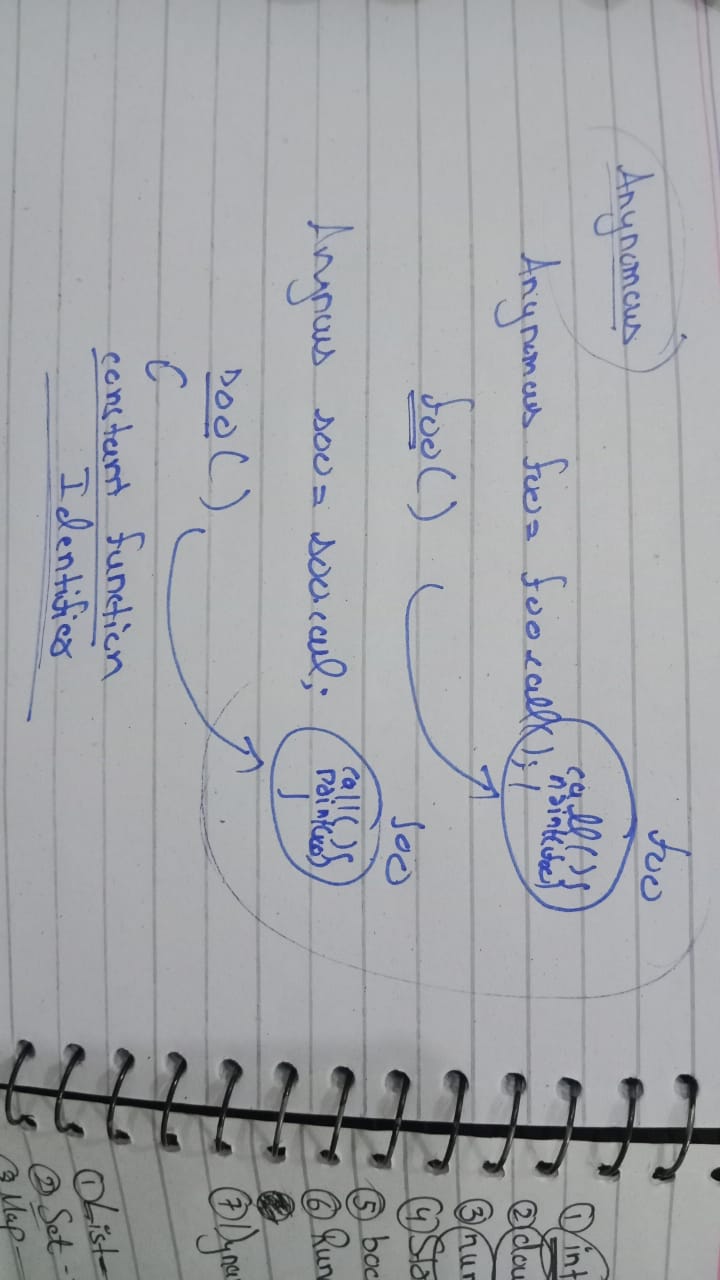 Anynomous
Anynomous foo = foo.call();
foo
call(){
print(foo)
}
foo()
Anynous soo = soo.call;
soo
call(){
print(soo)
}
soo()
constant function
Identifies
① int
② dou
③ num
④ Str
⑤ boo
⑥ Run
⑦ Dyna
① List-
② Set-
③ Map-